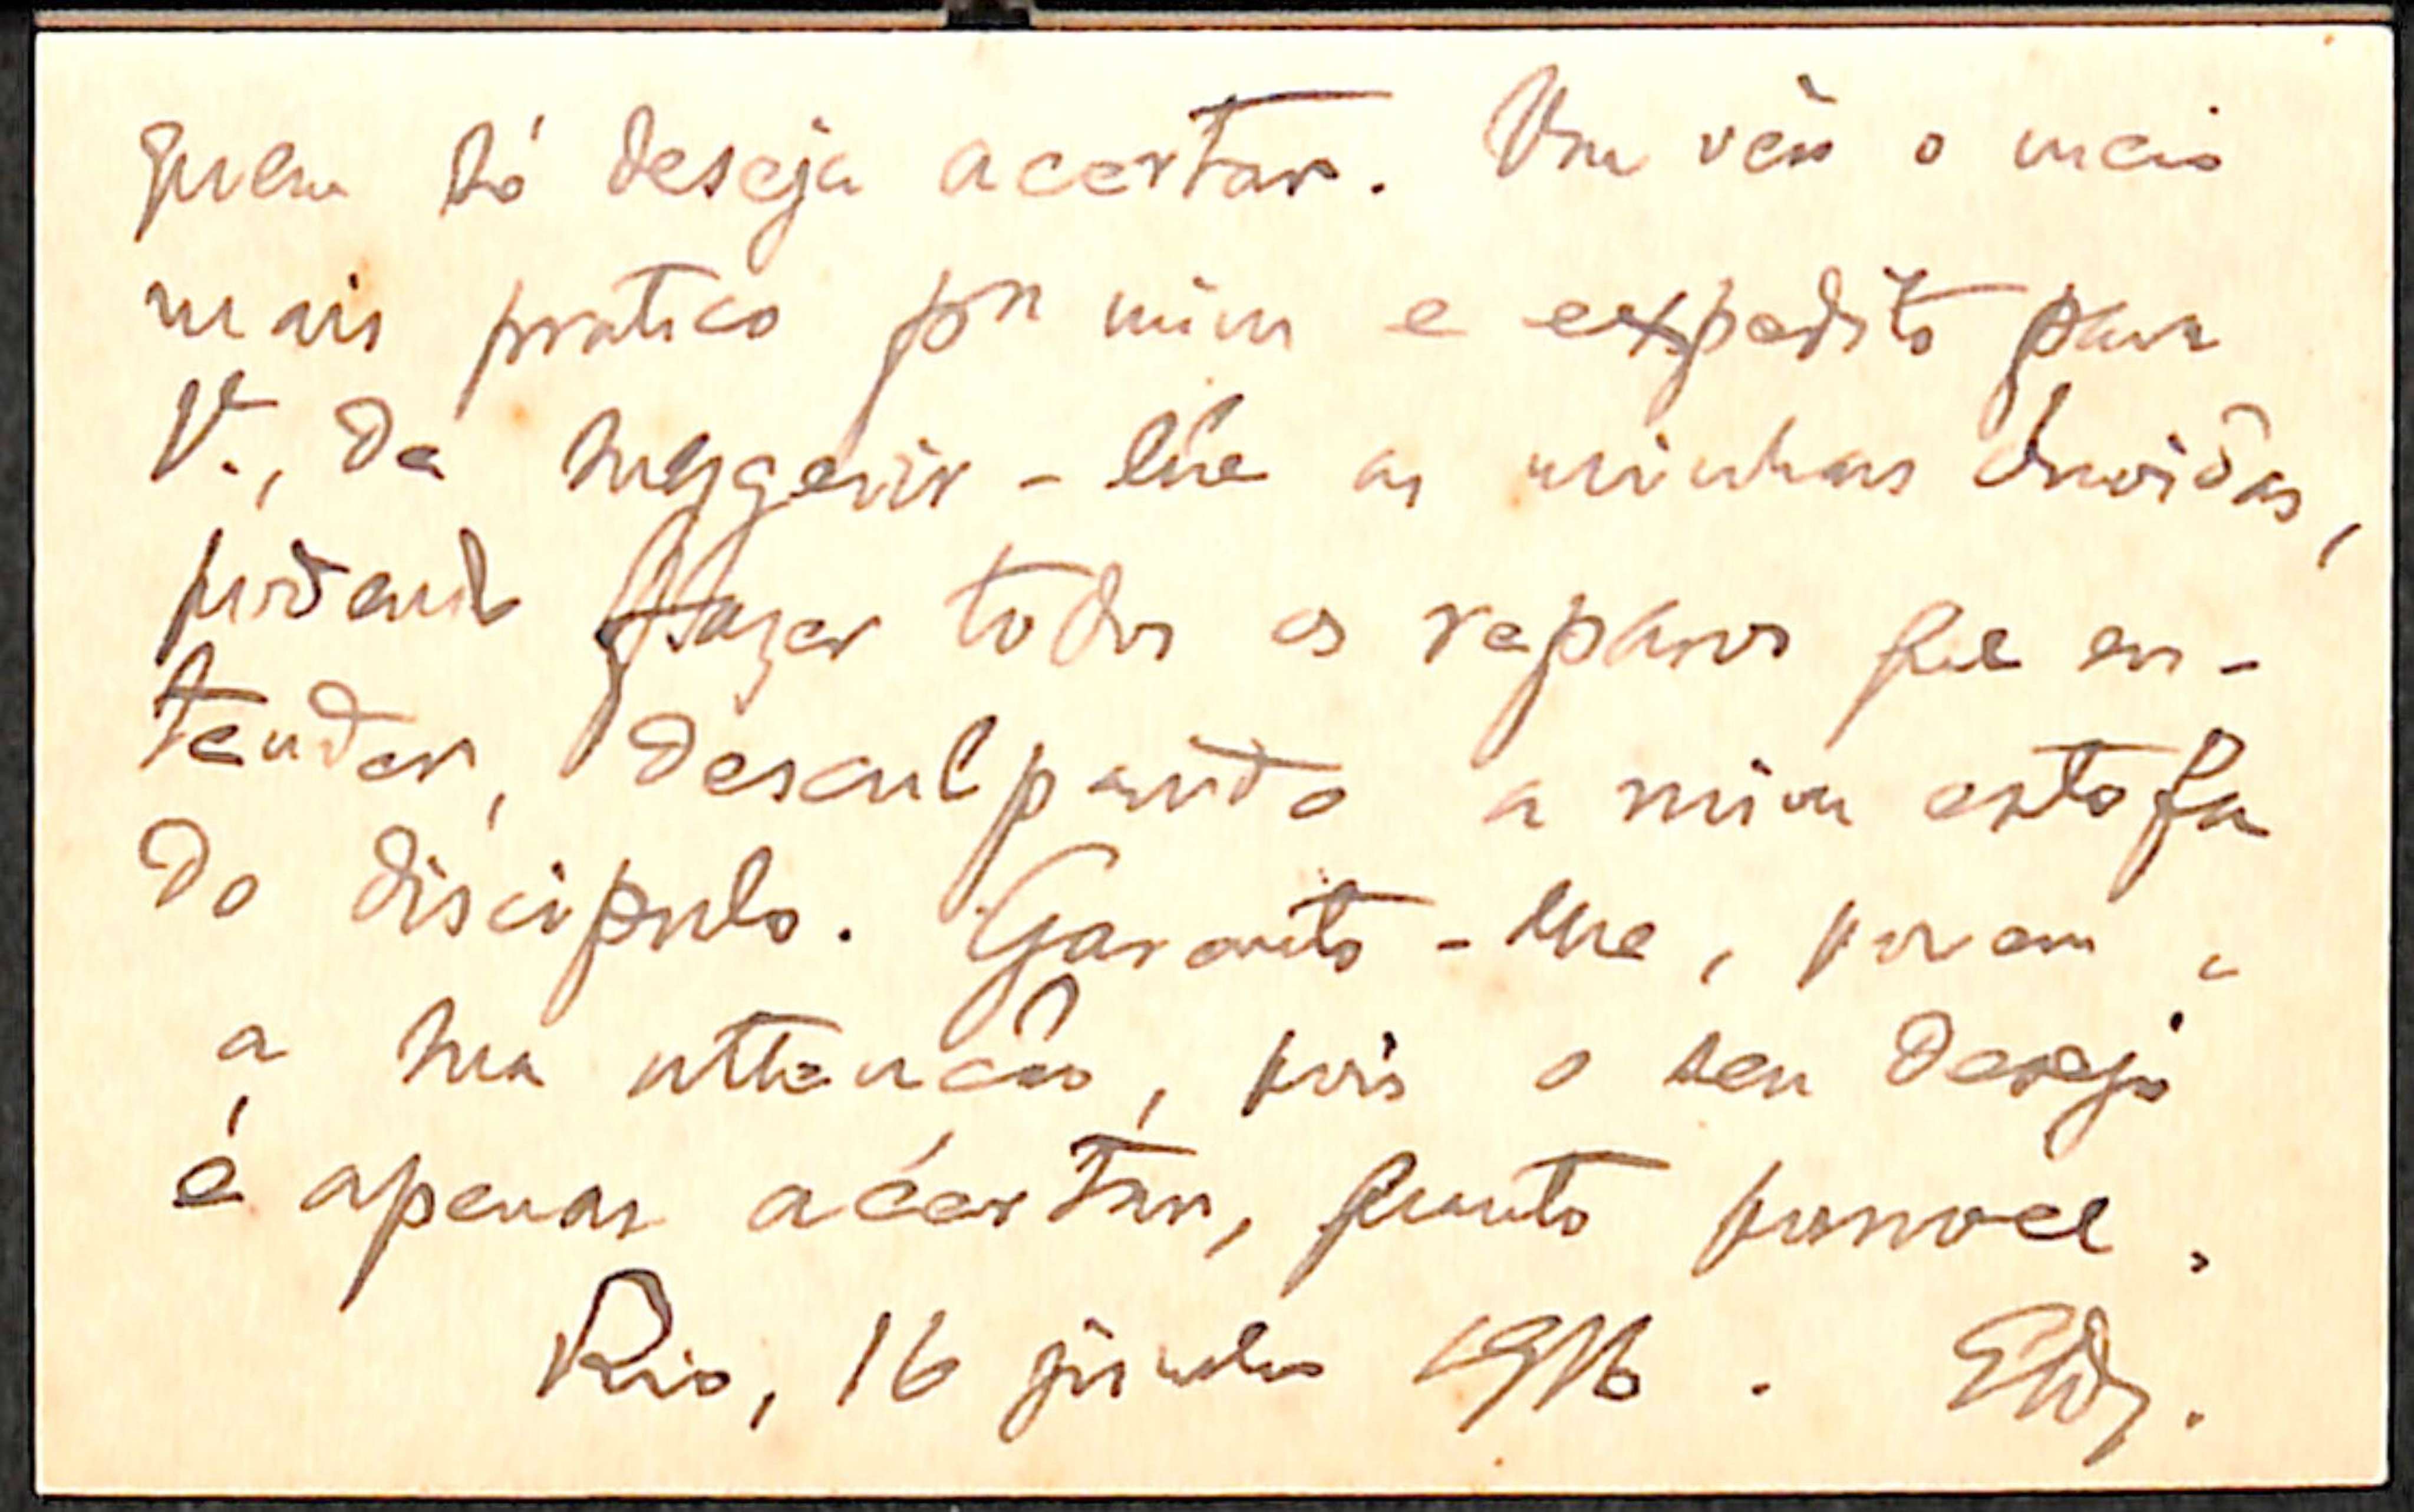 quem só deseja acertar. Um vez o meio
mais pratico prª mim e expedito para
V., de suggerir-lhe as minhas duvidas,
podendo fazer todos os reparos que en-
tender, desculpando a mim estofa
do discipulo. Garanto-lhe, porem,
a sua attenção, pois o seu desejo
é apenas acertar, quanto possivel.
Rio, 16 junho 1916.